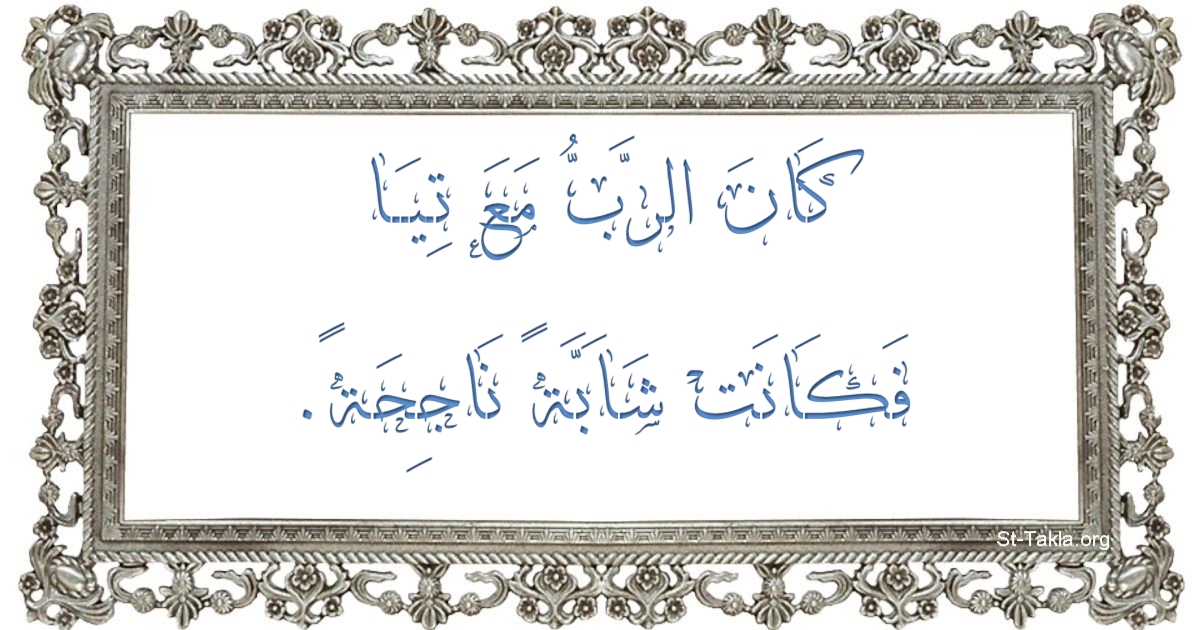 كَانَ الرَّبُّ مَعَ تِيَا
فَكَانَت شَابَّةً نَاجِحَةً.
St-Takla.org